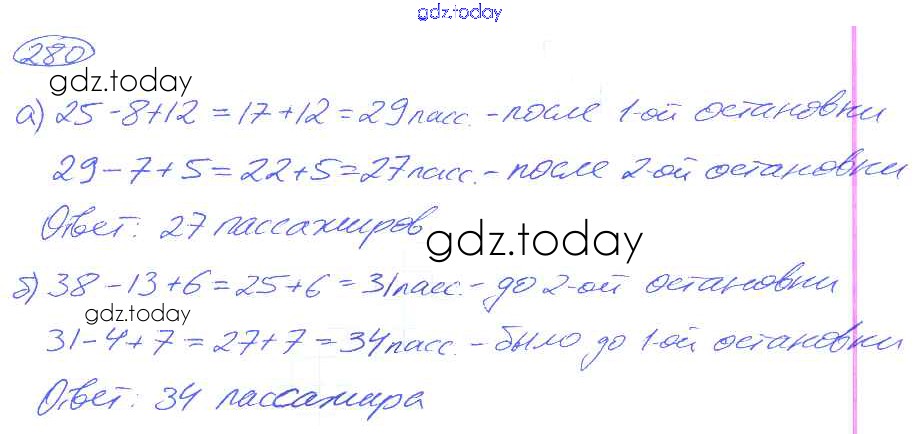 gdz.today
280
gdz.today
а) 25 - 8 + 12 = 17 + 12 = 29 пасс. - после 1-ой остановки
29 - 7 + 5 = 22 + 5 = 27 пасс. - после 2-ой остановки
Ответ: 27 пассажиров
gdz.today
б) 38 - 13 + 6 = 25 + 6 = 31 пасс. - до 2-ой остановки
gdz.today
31 - 4 + 7 = 27 + 7 = 34 пасс. - было до 1-ой остановки
Ответ: 34 пассажира